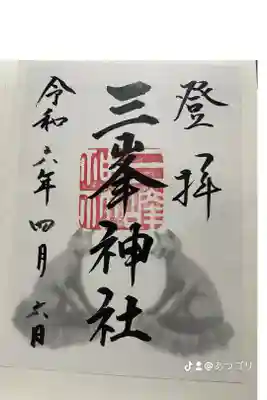 登拝
三峯神社
令和六年四月六日
@あつゴリ